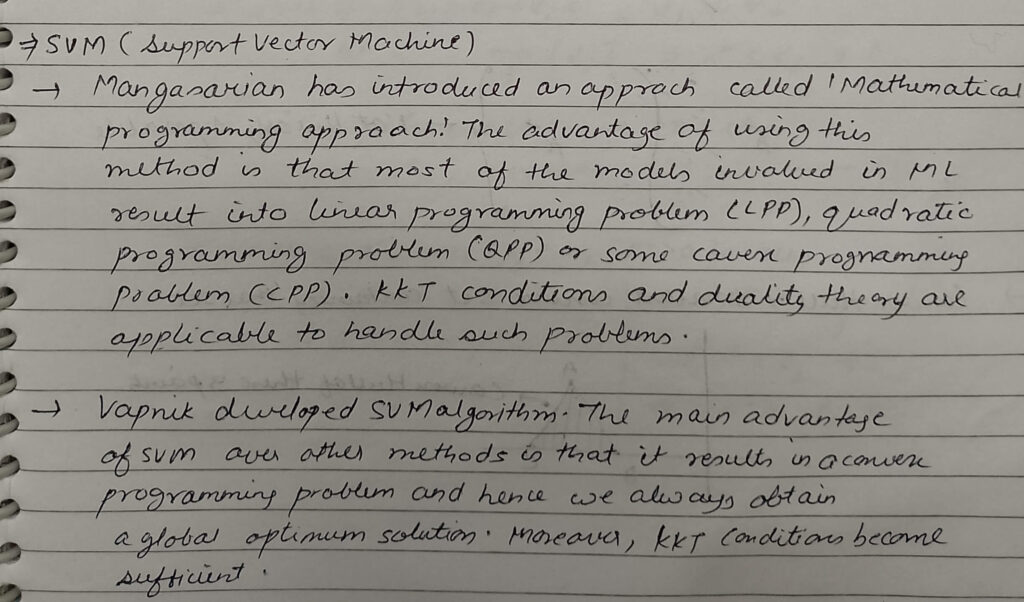 ⇒ SVM (Support Vector Machine)
→ Mangasarian has introduced an approch called 'Mathematical
programming appraach! The advantage of using this
method is that most of the models invalued in ML
result into linear programming problem (LPP), quadratic
programming problem (QPP) or some cavex programming
Problem (CPP). KKT conditions and duality theory are
applicable to handle such problems.
→ Vapnik developed SVM algorithm. The main advantage
of SVM over other methods is that it results in a convex
programming problem and hence we always obtain
a global optimum solution. Moreover, KKT Conditions become
sufficient.